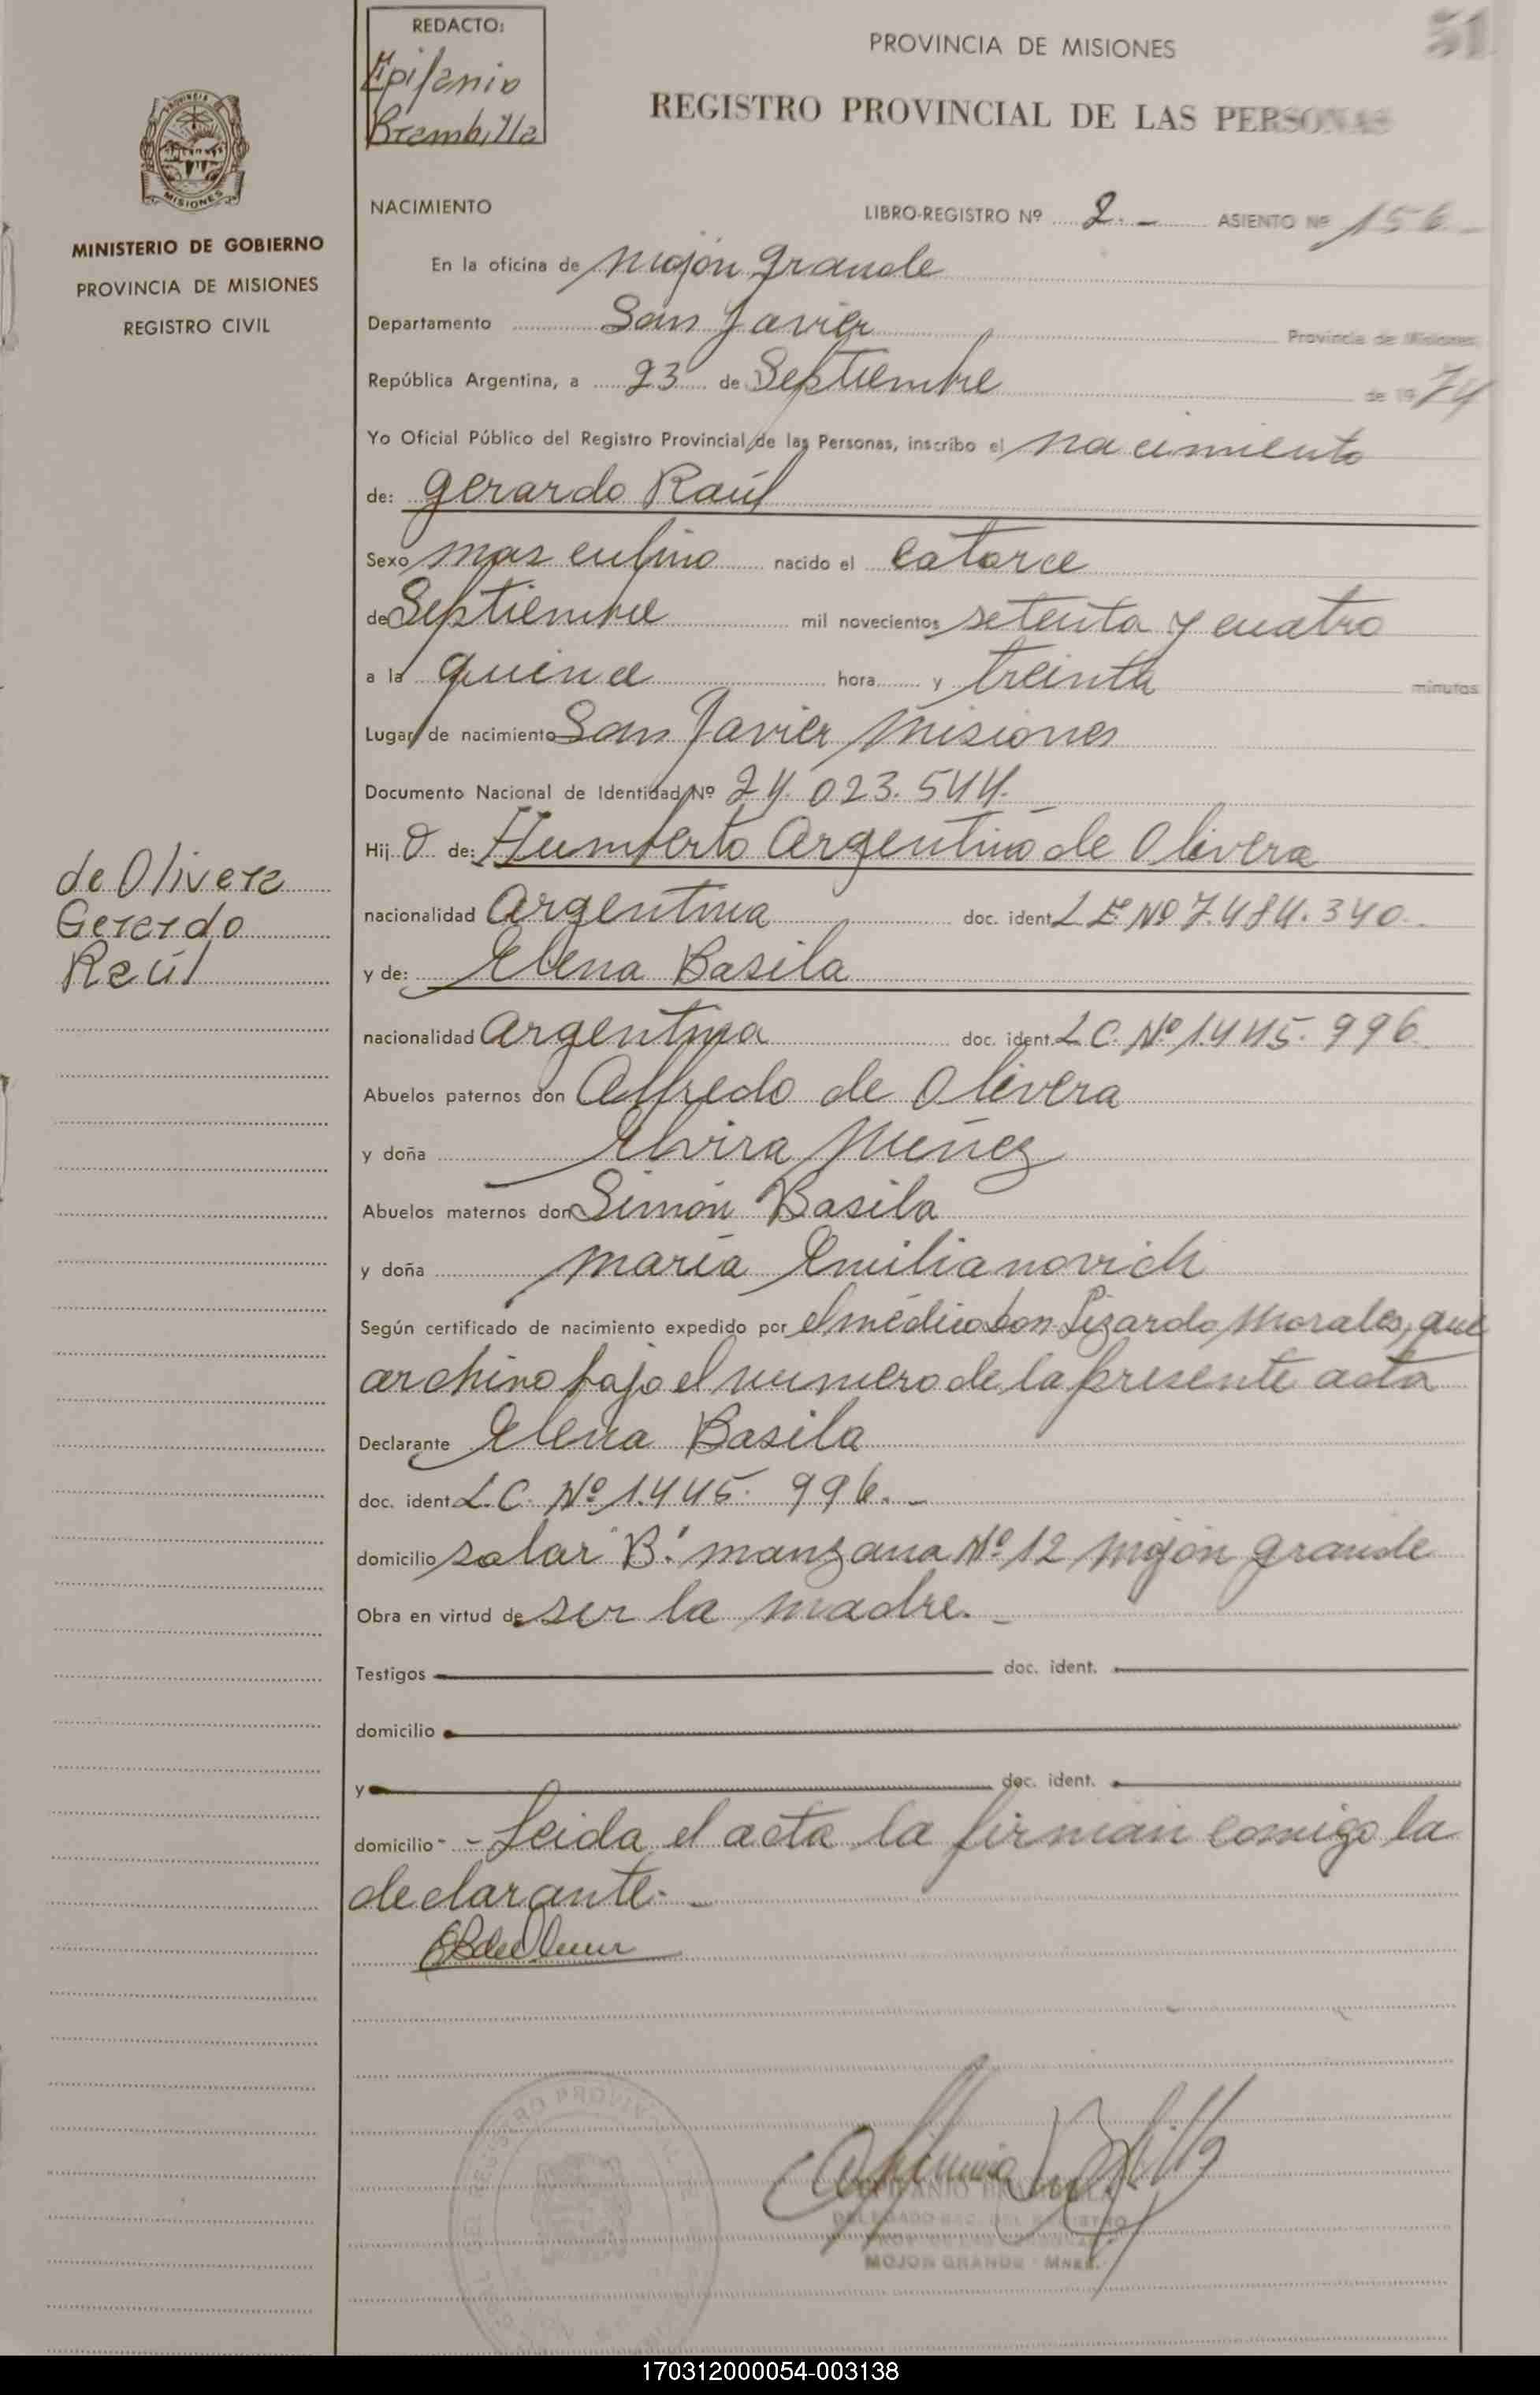 REDACTO:
Epifanio
Brembilla
PROVINCIA DE MISIONES
51
REGISTRO PROVINCIAL DE LAS PERSONAS
MISIONES
MINISTERIO DE GOBIERNO
PROVINCIA DE MISIONES
REGISTRO CIVIL
NACIMIENTO LIBRO-REGISTRO Nº 2.- ASIENTO Nº 156.-
En la oficina de Mojón Grande
Departamento San Javier Provincia de Misiones
República Argentina, a 23 de Septiembre de 1974
Yo Oficial Público del Registro Provincial de las Personas, inscribo el nacimiento
de: Gerardo Raúl
Sexo masculino nacido el catorce
de Septiembre mil novecientos setenta y cuatro
a la quince hora y treinta minutos
Lugar de nacimiento San Javier Misiones
Documento Nacional de Identidad Nº 24.023.544.
Hij o de: Humberto Argentino de Olivera
nacionalidad Argentina doc. ident. L.E. Nº 7.484.340.
y de: Elena Basila
nacionalidad Argentina doc. ident. L.C. Nº 1.445.996.
Abuelos paternos don Alfredo de Olivera
y doña Elvira Nuñez
Abuelos maternos don Simón Basila
y doña María Emilianovich
Según certificado de nacimiento expedido por el médico don Lizardo Morales, que
archivo bajo el numero de la presente acta
Declarante Elena Basila
doc. ident. L.C. Nº 1.445.996.-
domicilio solar "B" manzana Nº 12 Mojón Grande
Obra en virtud de ser la madre.-
Testigos doc. ident.
domicilio
y doc. ident.
domicilio - Leida el acta la firman comigo la
declarante.-
de Olivera
Gerardo
Raúl
EPIFANIO BREMBILLA
MOJON GRANDE - MNES.
170312000054-003138